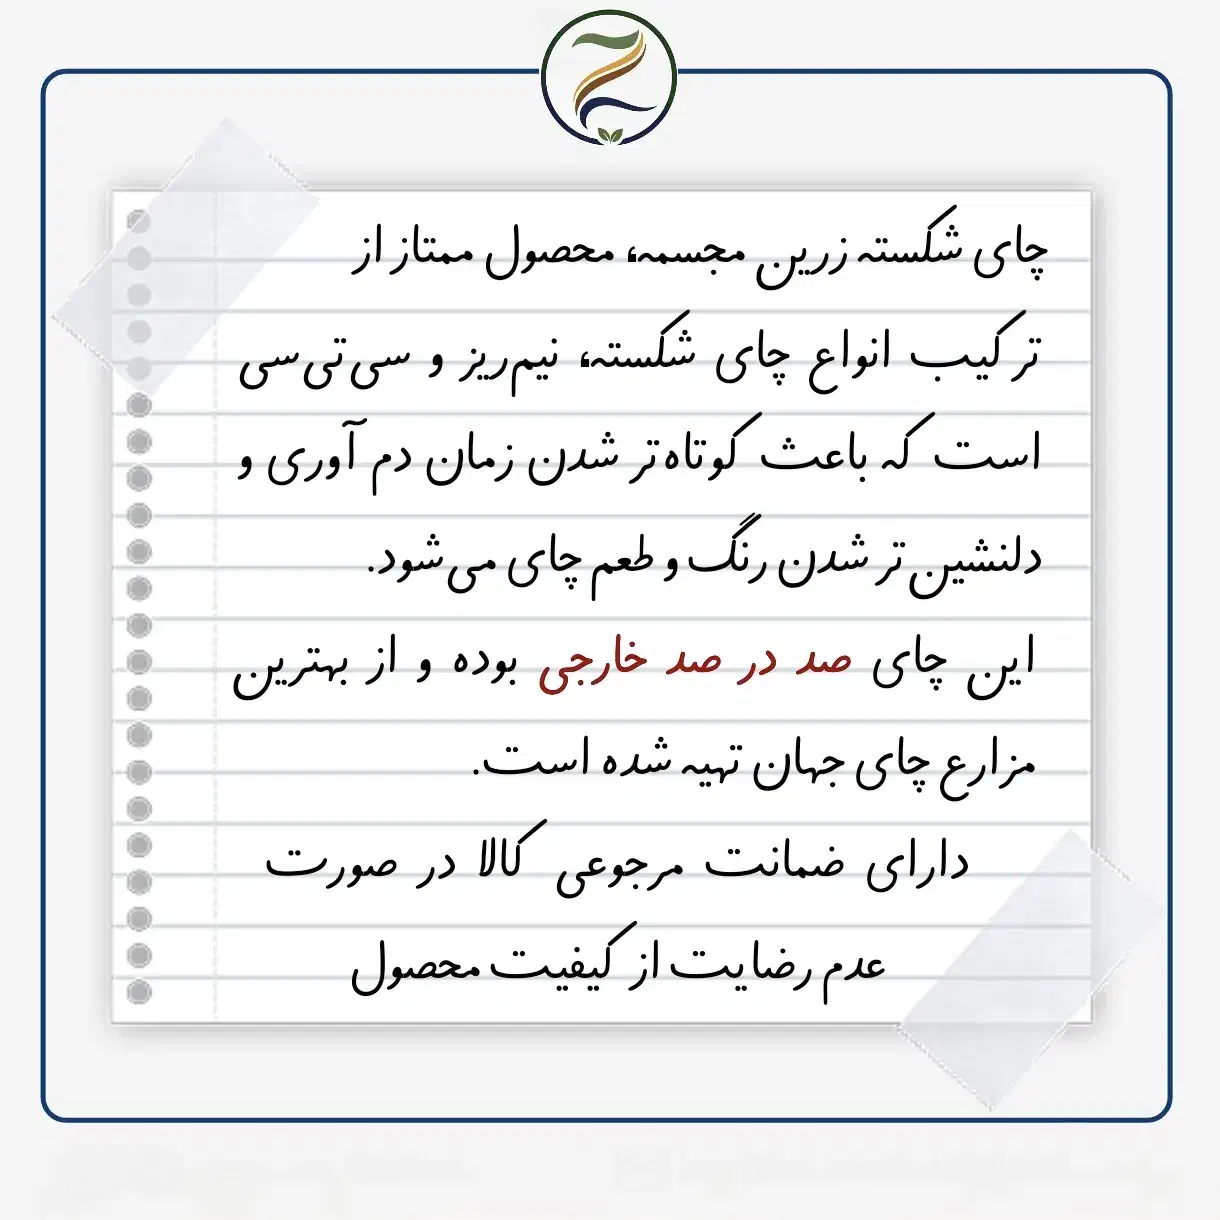 چای شکسته زرین مجسمه، محصول ممتاز از
ترکیب انواع چای شکسته، نیم‌ریز و سی‌تی‌سی
است که باعث کوتاه‌تر شدن زمان دم آوری و
دلنشین‌تر شدن رنگ و طعم چای می‌شود.
این چای صد در صد خارجی بوده و از بهترین
مزارع چای جهان تهیه شده است.
دارای ضمانت مرجوعی کالا در صورت
عدم رضایت از کیفیت محصول